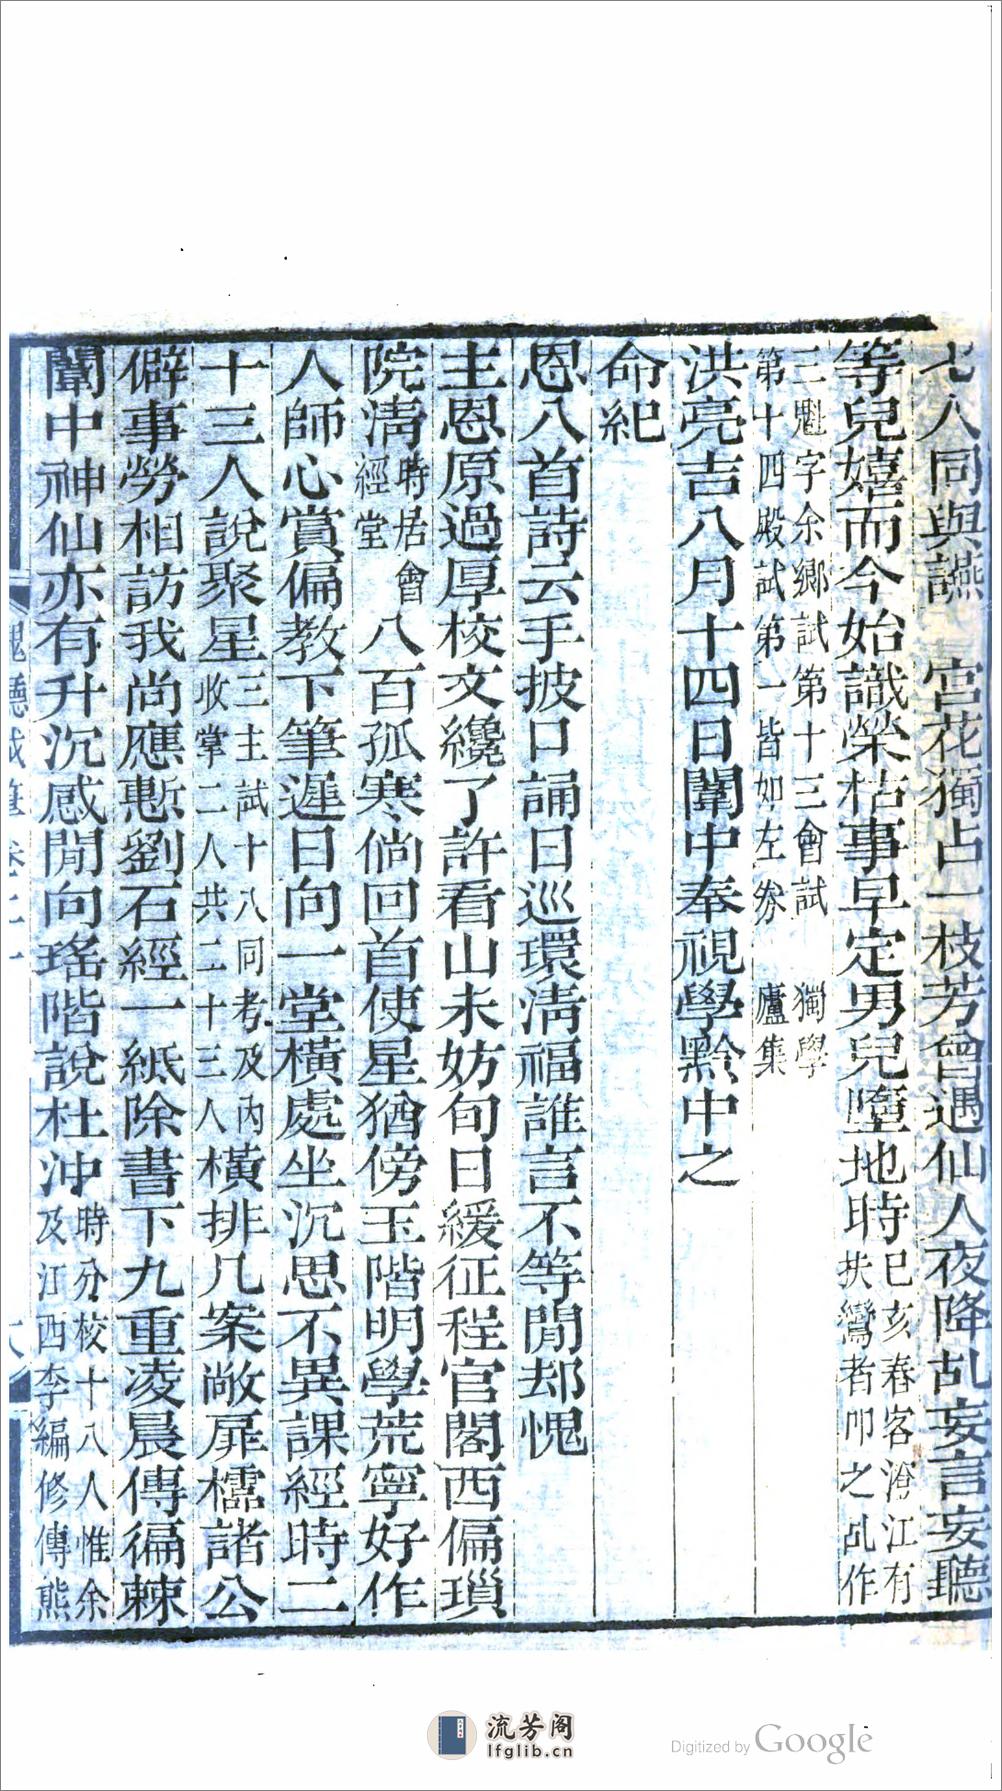 七人同與讌　宮花獨占一枝芳曾遇仙人夜降乩妄言妄聽
等兒嬉而今始識榮枯事早定男兒墮地時己亥春客滄江有扶鸞者叩之乩作
三魁字余鄉試第十三會試第十四殿試第一皆如左券　獨學廬集
洪亮吉八月十四日闈中奉視學黔中之
命紀
恩八首詩云手披口誦日巡環淸福誰言不等閒却愧
主恩原過厚校文纔了許看山未妨旬日緩征程官閣西偏瑣
院淸時居會經堂八百孤寒倘回首使星猶傍玉階明學荒寧好作
人師心賞偏教下筆遲日向一堂橫處坐沉思不異課經時二
十三人說聚星三主試十八同考及內收掌二人共二十三人橫排几案敞扉櫺諸公
僻事勞相訪我尚應慙劉石經一紙除書下九重凌晨傳徧棘
闈中神仙亦有升沉感閒向瑤階說杜沖時分校十八人惟余及江西李編修傳熊
槐廳載筆　卷二十
流芳阁
lfglib.cn
Digitized by Google